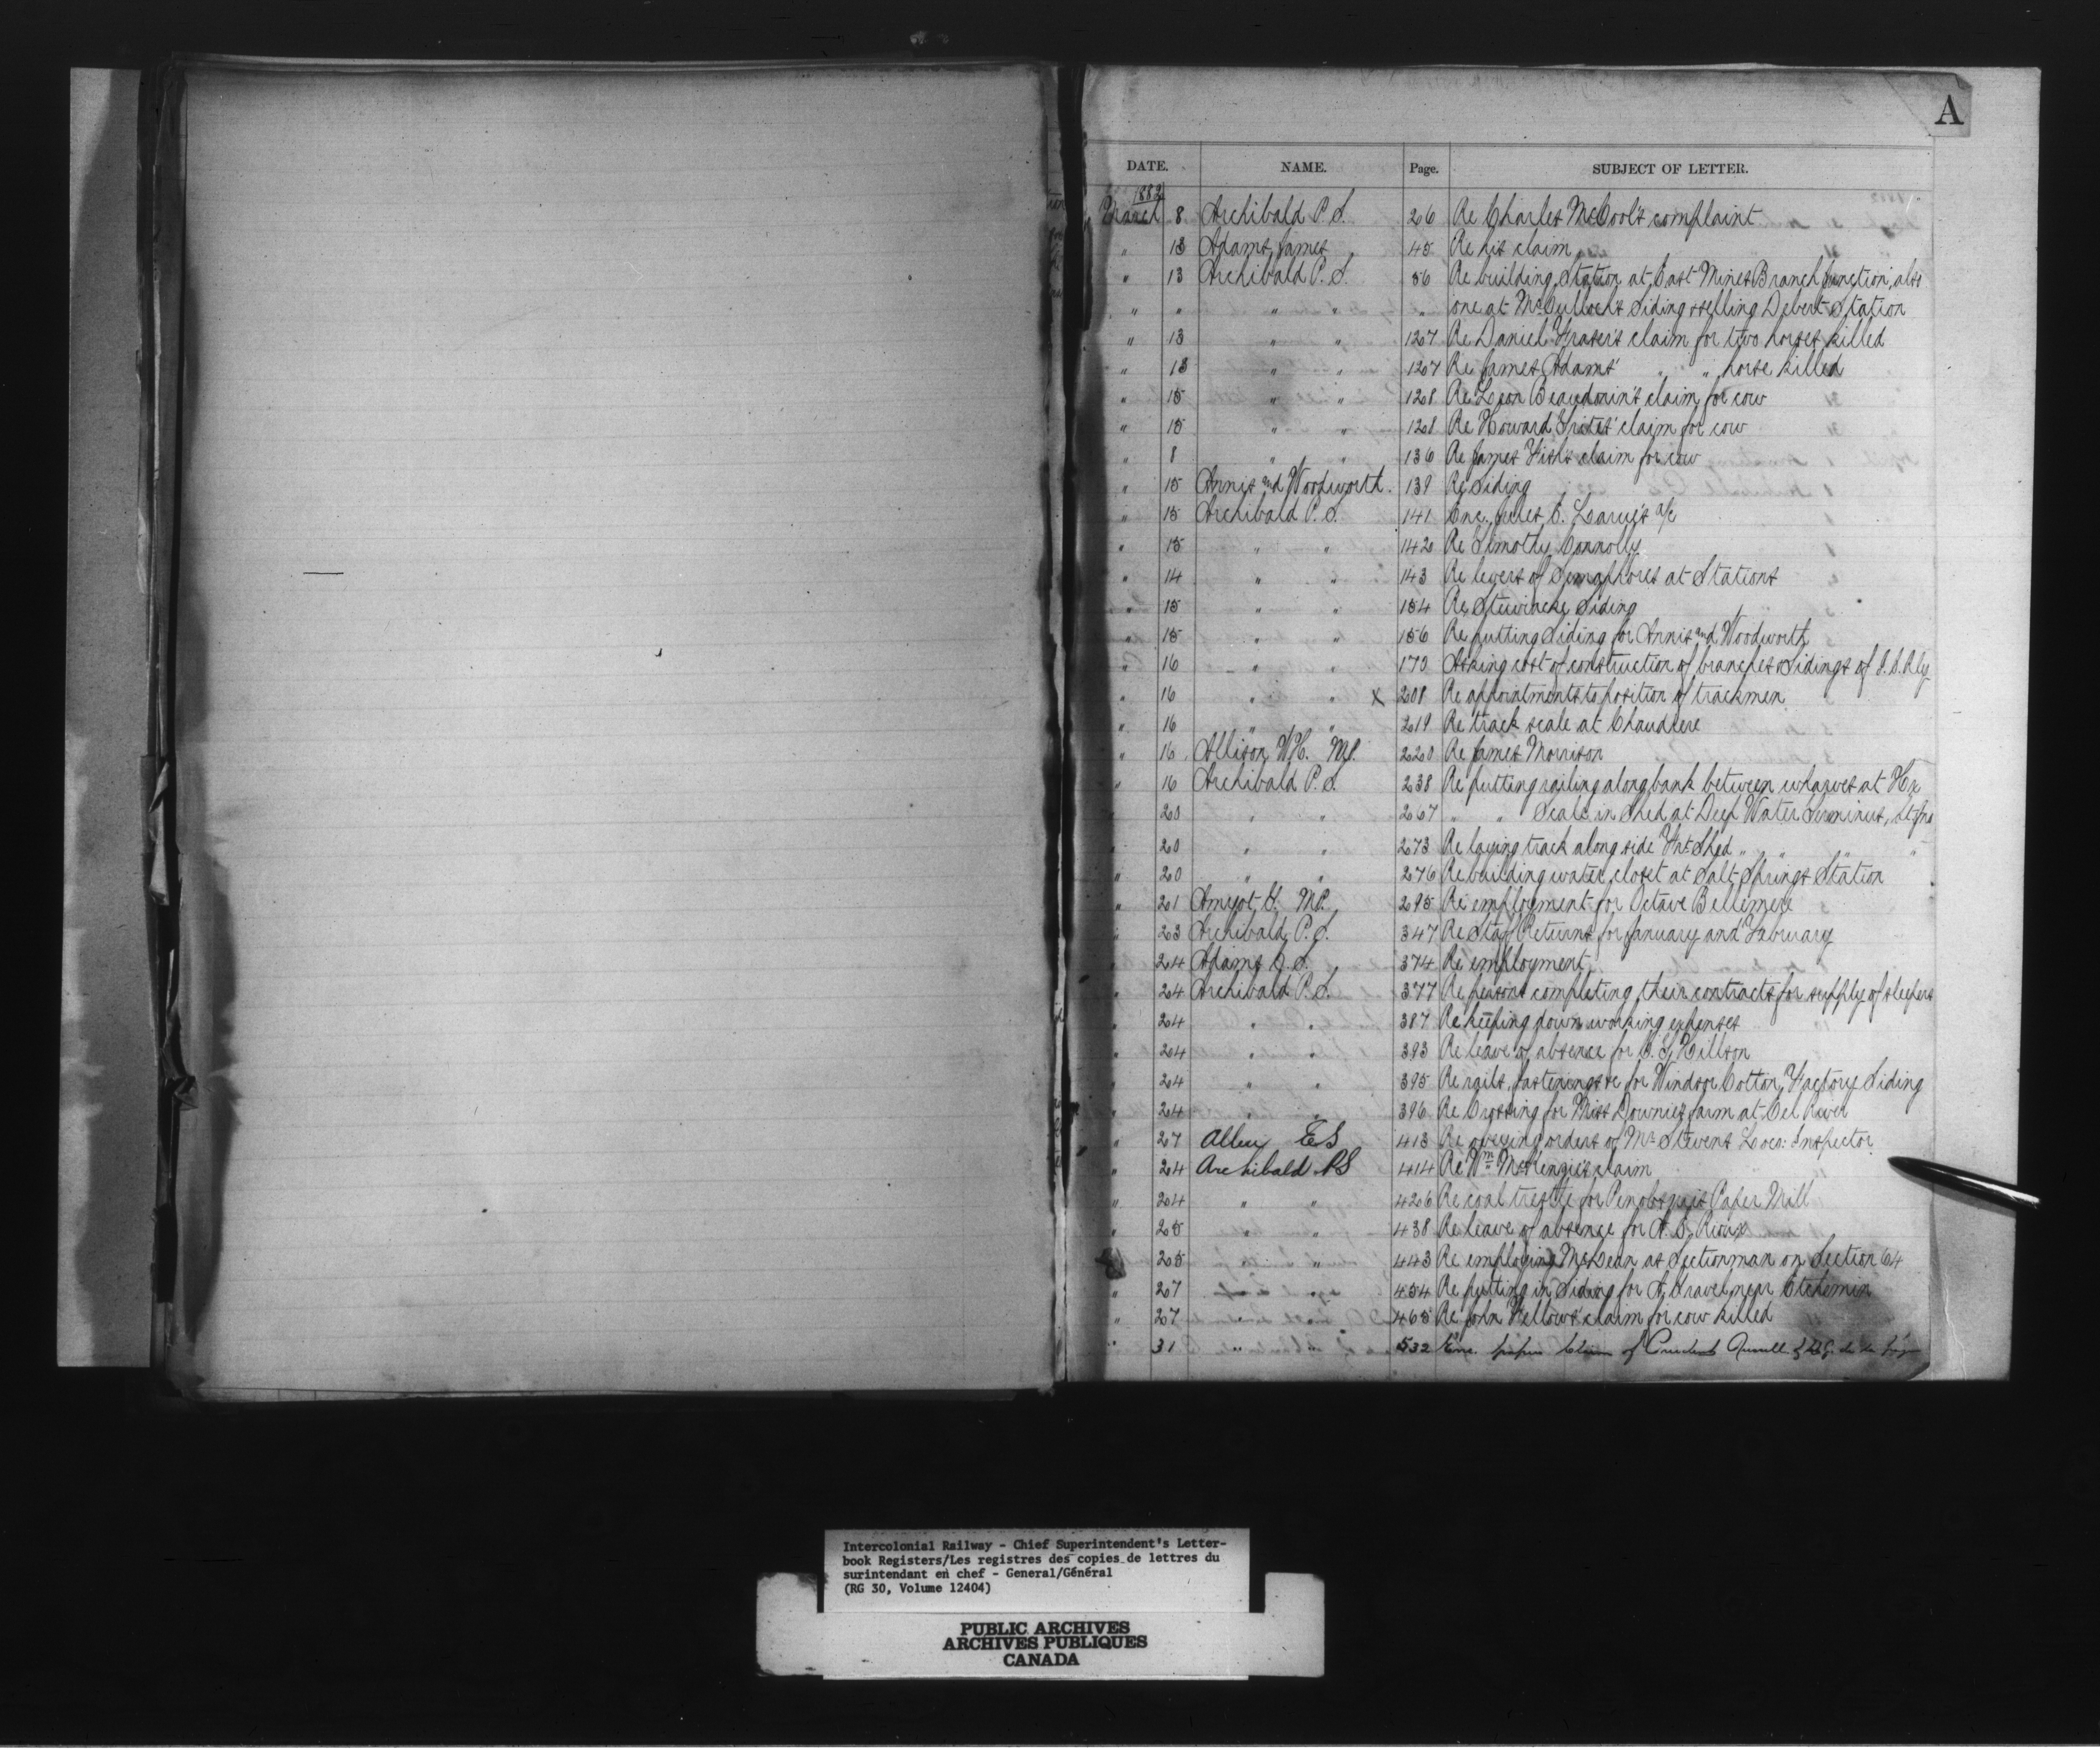 A
DATE. NAME. Page. SUBJECT OF LETTER.
1882
March 8 Archibald P. S. 26 Re Charles McCool's complaint
" 13 Adams James 45 Re his claim
" 13 Archibald P. S. 56 Re building Station at East Mines Branch Junction, also
" " " " " one at McCulloch's Siding & selling Debert Station
" 13 " " 127 Re Daniel Fraser's claim for two horses killed
" 13 " " 127 Re James Adams' " " horse killed
" 15 " " 128 Re Leon Beaudoin's claim for cow
" 15 " " 128 Re Howard Trites' claim for cow
" 8 " " 136 Re James Fish's claim for cow
" 15 Annis and Woodworth. 139 Re Siding
" 15 Archibald P. S. 141 Enc. Jules E. Larue's a/c
" 15 " " 142 Re Timothy Connolly
" 14 " " 143 Re levers of Semaphores at Stations
" 15 " " 154 Re Stewiacke Siding
" 15 " " 156 Re putting Siding for Annis and Woodworth
" 16 " " 170 Asking cost of construction of branches & Sidings of I. C. Rly
" 16 " " X 208 Re appointments to position of trackmen
" 16 " " 219 Re track scale at Chaudiere
" 16 Allison W. H. M.P. 220 Re James Morrison
" 16 Archibald P. S. 238 Re putting railing along bank between wharves at Hx
" 20 " " 267 " " Scale in Shed at Deep Water Terminus,
" 20 " " 273 Re laying track along side Shed " " "
" 20 " " 276 Re building water closet at Salt Springs Station
" 21 Amyot G. M.P. 295 Re employment for Octave Bellemere
" 23 Archibald P. S. 347 Re Staff Returns for January and February
" 24 Adams S. 374 Re employment
" 24 Archibald P. S. 377 Re persons completing their contracts for supply of sleepers
" 24 " " 387 Re keeping down working expenses
" 24 " " 393 Re leave of absence for Hillson
" 24 " " 395 Re rails, fastenings &c for Windsor Cotton Factory Siding
" 24 " " 396 Re Crossing for Miss Downie's farm at Eel River
" 27 Allen E S 413 Re obeying orders of Mr Stevens Loco: Inspector
" 24 Archibald P S 414 Re Wm McKenzie's claim
" 24 " " 426 Re coal trestle for Penobsquis Paper Mill
" 25 " " 438 Re leave of absence for Rioux
" 25 " " 443 Re employing McLean as Sectionman on Section 64
" 27 454 Re putting in Siding for near Etchemin
" 27 465 Re John Fellows' claim for cow killed
" 31 " " 532 Enc. papers Claim of
Intercolonial Railway - Chief Superintendent's Letter-
book Registers/Les registres des copies de lettres du
surintendant en chef - General/Général
(RG 30, Volume 12404)
PUBLIC ARCHIVES
ARCHIVES PUBLIQUES
CANADA